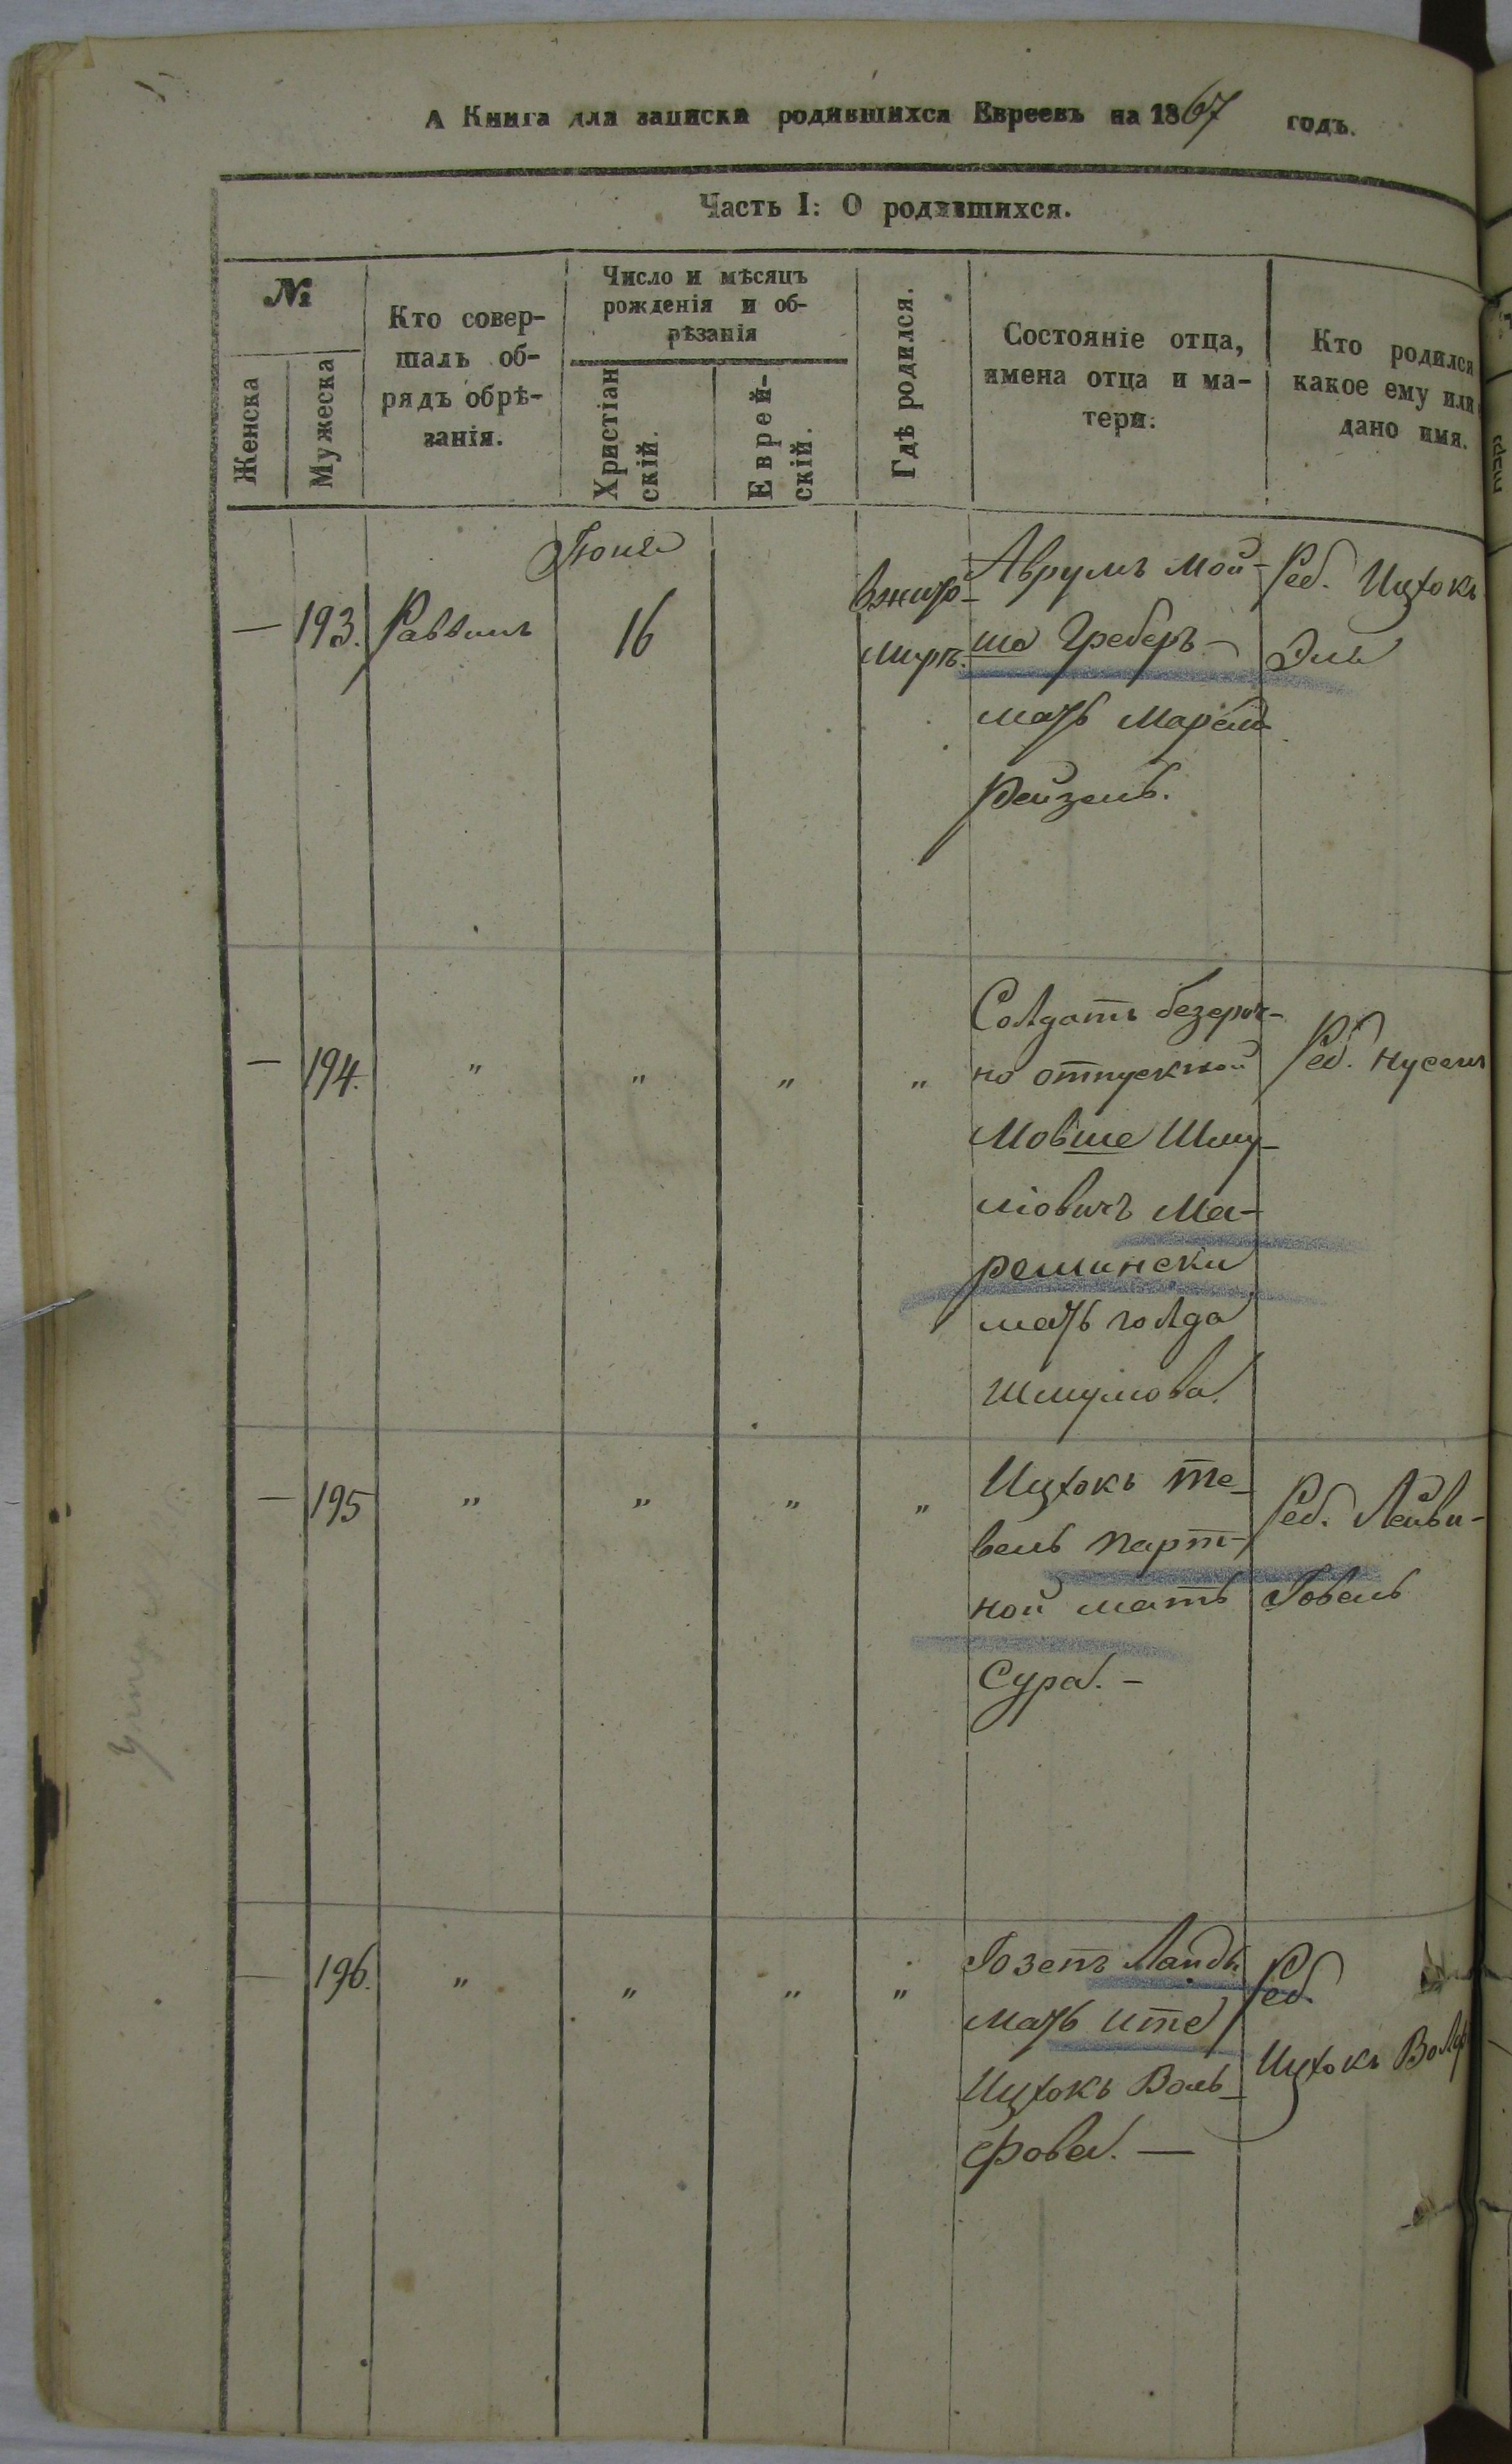 А Книга для записки родившихся Евреевъ на 1867 годъ.
Часть I: О родившихся.
№
Женска
Мужеска
Кто совер-
шалъ об-
рядъ обрѣ-
занія.
Число и мѣсяцъ
рожденія и об-
рѣзанія
Христіан
скій.
Еврей-
скій.
Гдѣ родился.
Состояніе отца,
имена отца и ма-
тери.
Кто родился
какое ему или
дано имя.
Іюня
— 193. Раввинъ 16
Вжито-
миръ.
Аврумъ Мой-
ша Греберъ —
мать
Рейзель.
Реб. Ицхокъ
Эль
— 194. " " " "
Солдатъ безсроч-
но отпускной
Мовше Шму-
ліовичъ Ма-
решински
мать Голда
Шмулова
Реб. Нусенъ
— 195 " " " "
Ицхокъ Те-
вель Парт-
ной мать
Сура. —
Реб. Лейви-
Говель
— 196. " " " "
Іозепъ Ландъ
мать Ите
Ицхокъ Воль-
фова. —
Реб.
Ицхокъ Волф